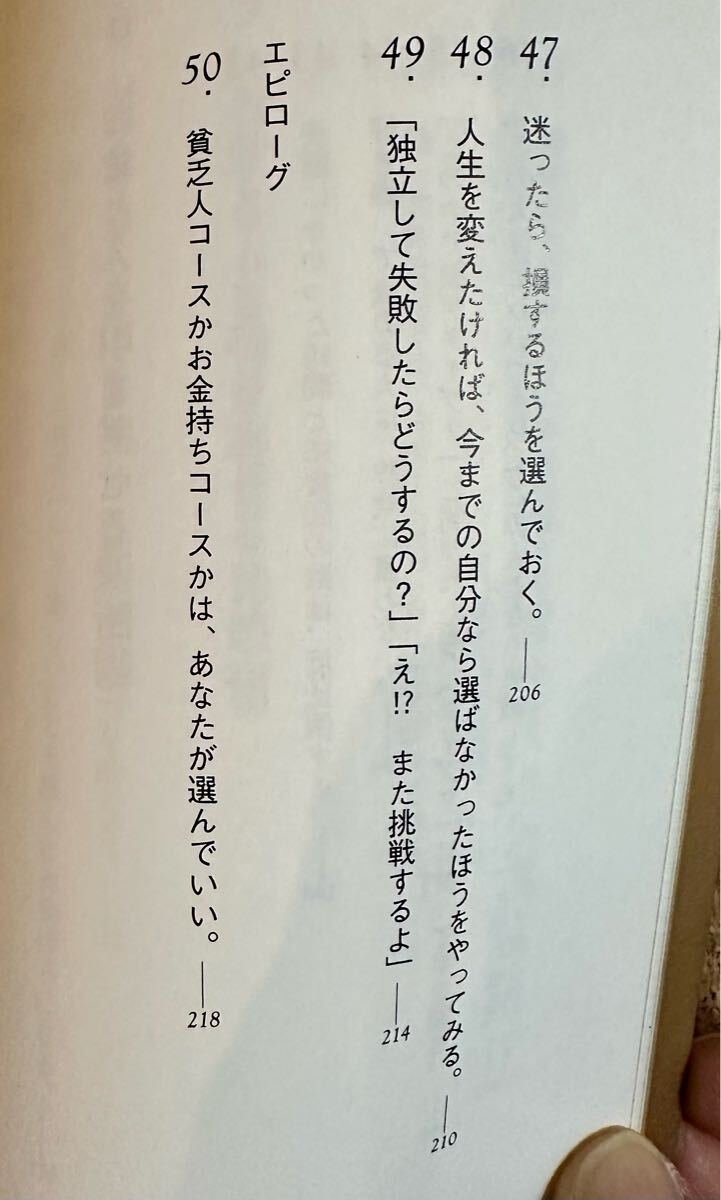 47. 迷ったら、損するほうを選んでおく。——206
48. 人生を変えたければ、今までの自分なら選ばなかったほうをやってみる。——210
49. 「独立して失敗したらどうするの？」「え!?　また挑戦するよ」——214
エピローグ
50. 貧乏人コースかお金持ちコースかは、あなたが選んでいい。——218